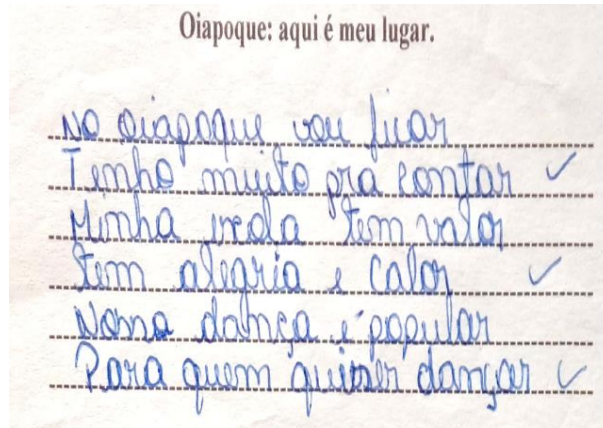 Oiapoque: aqui é meu lugar.
No oiapoque vou ficar
Tenho muito pra contar ✓
Minha escola tem valor
tem alegria e calor ✓
Nossa dança é popular
Para quem quiser dançar ✓